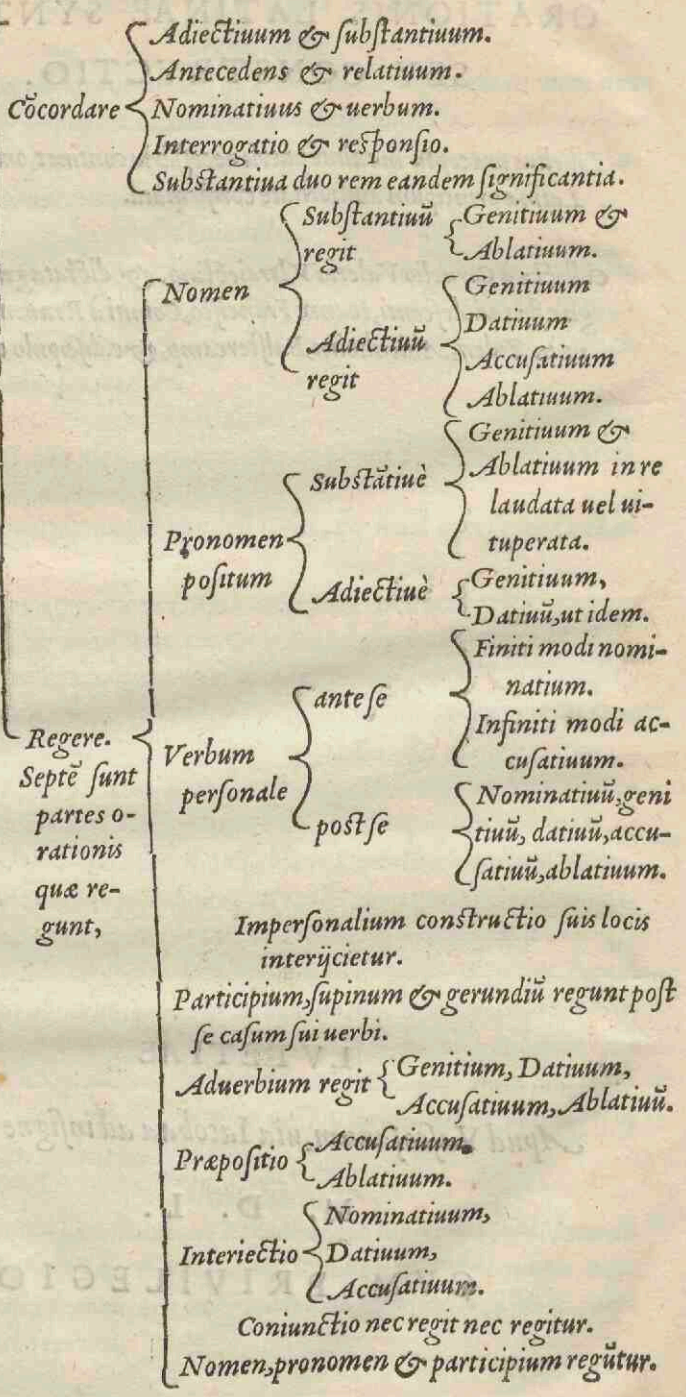 Adiectiuum & substantiuum.
Antecedens & relatiuum.
Cōcordare
Nominatiuus & uerbum.
Interrogatio & responsio.
Substantiua duo rem eandem significantia.
Nomen
Substantiuū
regit
Genitiuum &
Ablatiuum.
Adiectiuū
regit
Genitiuum
Datiuum
Accusatiuum
Ablatiuum.
Pronomen
positum
Substātiuè
Genitiuum &
Ablatiuum in re
laudata uel ui-
tuperata.
Adiectiuè
Genitiuum,
Datiuū, ut idem.
Regere.
Septē sunt
partes o-
rationis
quæ re-
gunt,
Verbum
personale
ante se
Finiti modi nomi-
natium.
Infiniti modi ac-
cusatiuum.
post se
Nominatiuū, geni
tiuū, datiuū, accu-
satiuū, ablatiuum.
Impersonalium constructio suis locis
interijcietur.
Participium, supinum & gerundiū regunt post
se casum sui uerbi.
Aduerbium regit
Genitium, Datiuum,
Accusatiuum, Ablatiuū.
Præpositio
Accusatiuum.
Ablatiuum.
Interiectio
Nominatiuum,
Datiuum,
Accusatiuum.
Coniunctio nec regit nec regitur.
Nomen, pronomen & participium regūtur.